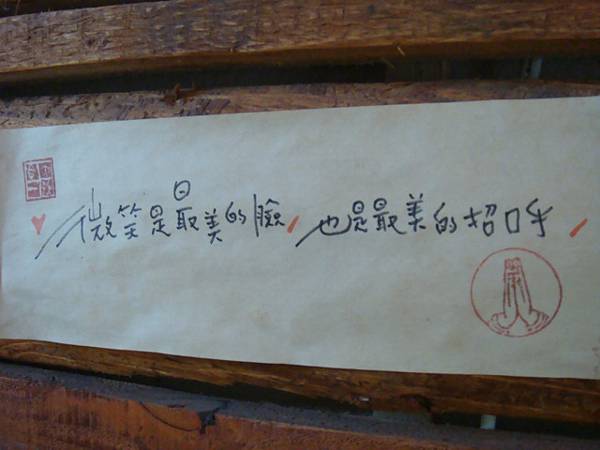 微笑是最美的臉，也是最美的招呼，